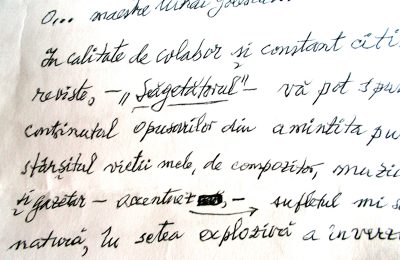 O... maestre Mihai
În calitate de colabor și constant citi
reviste, – „Săgetătorul" – vă pot spu
conținutul opusurilor din amintita pu
sfârșitul vieții mele, de compozitor, muzic
și gazetar – accentuez – sufletul mi s
natură, în setea explozivă a inverzi